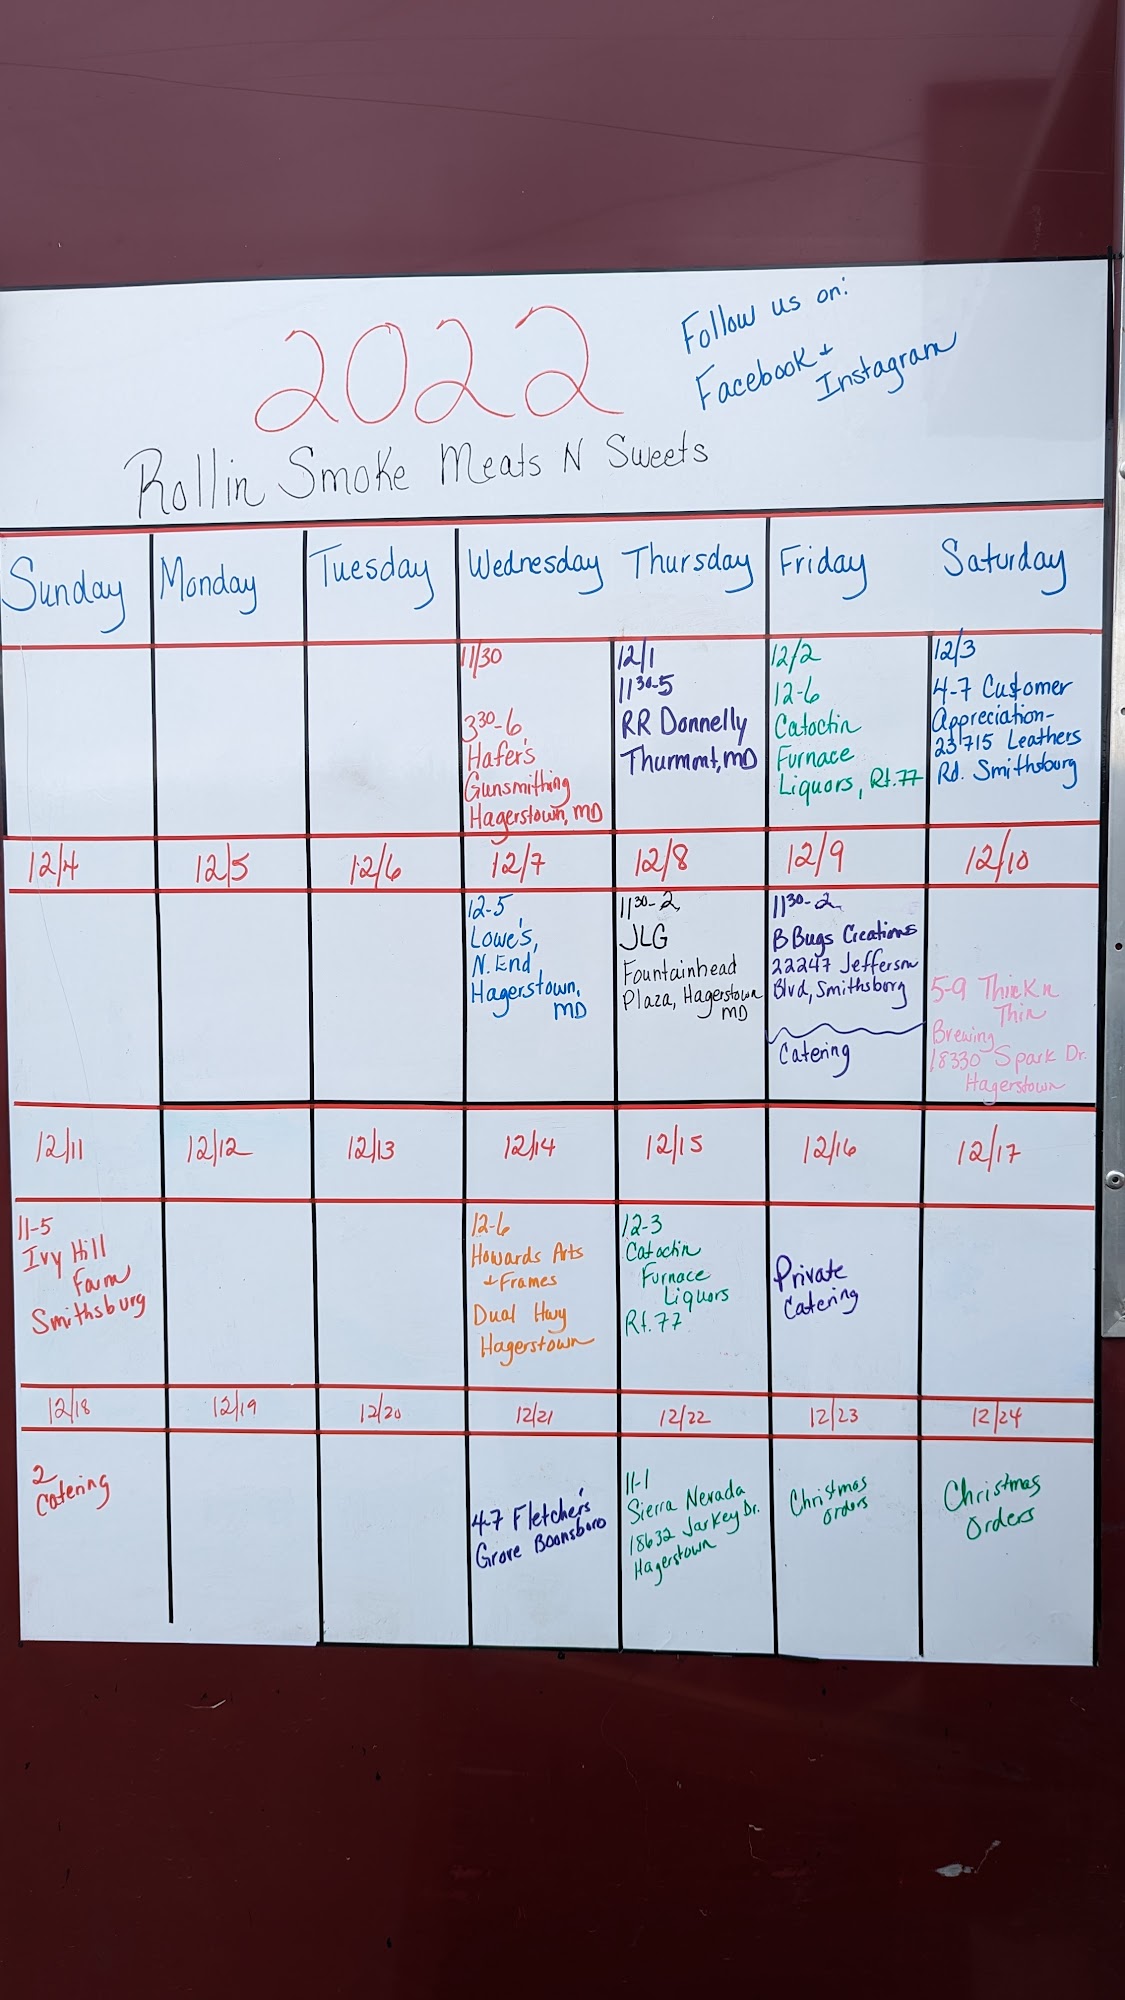 2022
Follow us on:
Facebook +
Instagram
Rollin Smoke Meats N Sweets
Sunday Monday Tuesday Wednesday Thursday Friday Saturday
11/30
3³⁰-6
Hafer's
Gunsmithing
Hagerstown, MD
12/1
11³⁰-5
RR Donnelly
Thurmont, MD
12/2
12-6
Catoctin
Furnace
Liquors, Rt. 77
12/3
4-7 Customer
Appreciation-
23715 Leathers
Rd. Smithsburg
12/4 12/5 12/6 12/7 12/8 12/9 12/10
12-5
Lowe's,
N. End
Hagerstown,
MD
11³⁰-2
JLG
Fountainhead
Plaza, Hagerstown
MD
11³⁰-2
B Bugs Creations
22247 Jefferson
Blvd, Smithsburg
Catering
5-9 Thick n
Thin
Brewing
18330 Spark Dr.
Hagerstown
12/11 12/12 12/13 12/14 12/15 12/16 12/17
11-5
Ivy Hill
Farm
Smithsburg
12-6
Howards Arts
+ Frames
Dual Hwy
Hagerstown
12-3
Catoctin
Furnace
Liquors
Rt. 77
Private
Catering
12/18 12/19 12/20 12/21 12/22 12/23 12/24
2
Catering
4-7 Fletcher's
Grove Boonsboro
11-1
Sierra Nevada
18632 Jarkey Dr.
Hagerstown
Christmas
orders
Christmas
Orders